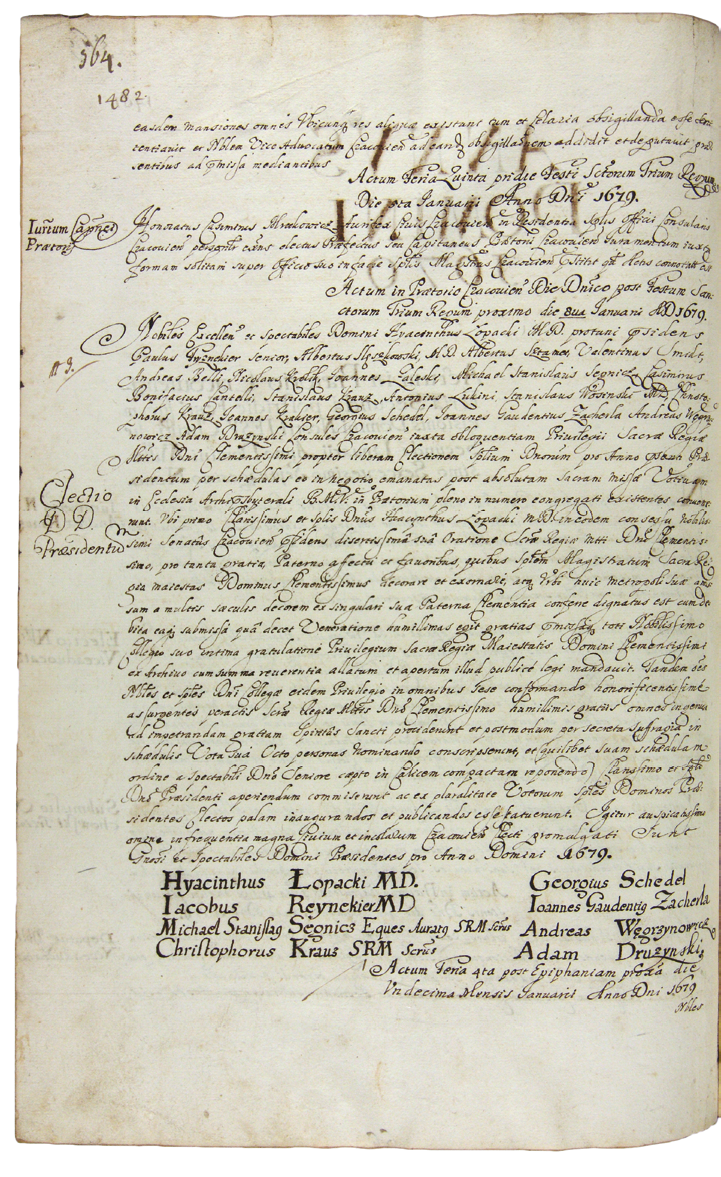 564.
1482.
easdem mansiones omnes Vbicunq res aliquæ existunt cum et Salaria obsigillanda esse
tentiavit et Nblem Vice Advocatum Cracovien ad eandq obsigillaõnem addidit et deputavit
sentibus ad pmissa mediantibus
Actum Feria Quinta pridie Festi Sctorum Trium Regum
Die 5ta Januarii Anno Dni 1679.
Iurium Capnei
Prætorii
Honoratus Casimirus Aurifex Civis Cracovien in Residentia Splis Officii Consularis
Cracovien electus Præfectus seu Capitaneus Prætorii Cracovien Iuramentum iuxta
formam solitam super officio suo in facie Magtus Cracovien
Actum in Prætorio Cracovien Die Dnico post Festum San-
ctorum Trium Regum proximo die 8ua Januarii MD1679.
Nobiles Excellen et Spectabiles Domini Hyacinthus Lopacki M.D. protunc psidens
Paulus Frznekier Senior, Albertus M.D. Albertus Valentinus Smidt,
Andreas Belli, Nicolaus Krolik, Joannes Zaleski, Michael Stanislaus Segnicz, Casimirus
Bonifacius Cantelli, Stanislaus Krauz, Antonius Lukini, Stanislaus Wosinski MD, Christo-
phorus Krauz, Joannes Krakier, Georgius Schedel, Joannes Gaudentius Zacherla Andreas Węgrzy-
nowicz Adam Druzynski Consules Cracovien iuxta obloquentiam Privilegii Sacræ Regiæ
Mttis Dni Clementissimi propter liberam Electionem Splium Dnorum pro Anno præsen Præ-
sidentum per schædulas eo in negotio emanatas post absolutam Sacram missæ Votivam
Electio
D D.
Præsidentũ
in Ecclesia Archipræsbyterali B.M.V. in Prætorium pleno in numero congregati existentes convene-
runt. Vbi primo Clarissimus et Splis Dnus Hyacinthus Lopacki M.D. in eodem consessu Nobilis-
simi Senatus Cracovien psidens disertissima suâ Oratione Scræ Regiæ Mtti Dno Clementis-
simo, pro tanta gratia, Paterno affectu et favoribus, quibus Splem Magistratum Sacra Re-
gia maiestas Dominus Clementissimus decorare et exornare, atq Vrbi huic metropoli suæ
sum a multis sæculis decorem ex singulari sua Paterna Clementia conferre dignatus est cum de-
bita eaq submissa quâ decet Veneratione humillimas egit gratias toti Nobilissimo
Collegio suo intima gratulatione Privilegium Sacræ Regiæ Maiestatis Domini Clementissimi
ex Archivo cum summa reverentia allatum et apertum illud publice legi mandavit. Tandem oẽs
Nbles et Sples Dni Collegæ eidem Privilegio in omnibus sese conformando honorificentissime
assurgentes peractis Scræ Regiæ Mttis Dno Clementissimo humillimis gratiis omnes in genua
ad impetrandam gratiam Spiritus Sancti prociderunt et postmodum per secreta suffragia in
schædulis Vota sua Octo personas nominando conscripserunt, et quilibet suam schædulam
ordine a spectabili Dno Seniore cæpto in Calicem compactam reponendo) Clarissimo et Spli
Dno Præsidenti aperiendum commiserunt ac ex pluralitate Votorum Sples Dominos Præ-
sidentes Electos palam inaugurandos et publicandos esse statuerunt. Igitur auspicatissimo
omine in frequentia magna Civium et incolarum Cracovien Lecti promulgati Sunt
Gnosi et Spectabiles Domini Præsidentes pro Anno Domini 1679.
Hyacinthus Lopacki MD. Georgius Schedel
Iacobus Reynekier MD Ioannes Gaudentig Zacherla
Michael Stanislag Segnicz Eques Auratg SRM Scrius Andreas Węgorzynowicz
Christophorus Kraus SRM Scrius Adam Druzynski
Actum Feria 4ta post Epiphaniam proxa die
Vndecima Mensis Januarii Anno Dni 1679
Nbles